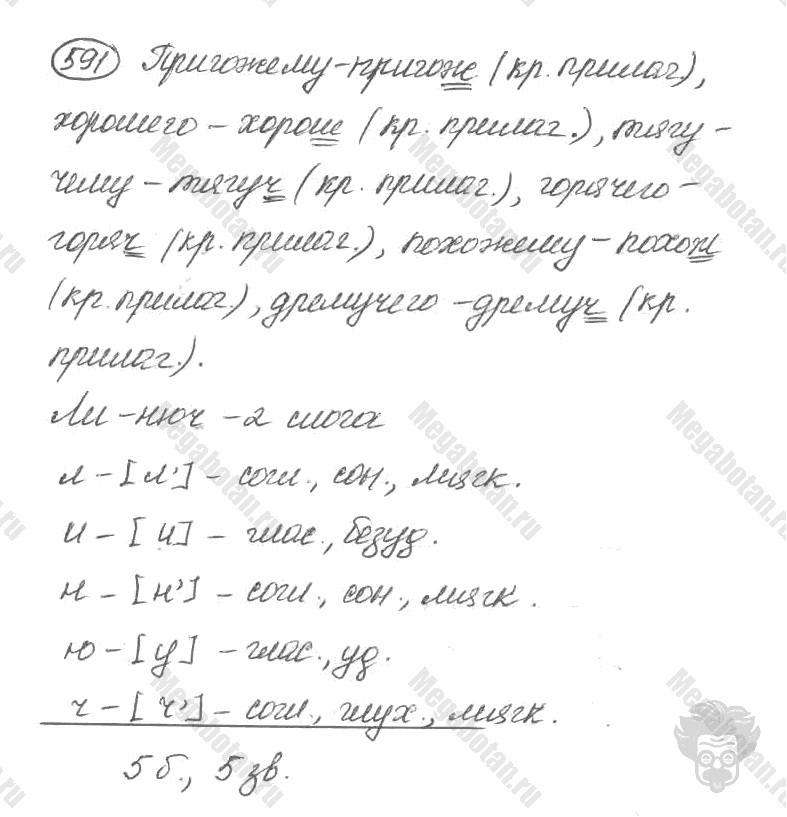 591 Пригожему - пригоже (кр. прилаг.),
хорошего - хорош (кр. прилаг.), тягу-
чему - тягуч (кр. прилаг.), горячего -
горяч (кр. прилаг.), похожему - похож
(кр. прилаг.), дремучего - дремуч (кр.
прилаг.).
Ли - нюч - 2 слога
л - [л'] - согл., сон., мягк.
и - [и] - глас., безуд.
н - [н'] - согл., сон., мягк.
ю - [у] - глас., уд.
ч - [ч'] - согл., глух., мягк.
5 б., 5 зв.
Megabotan.ru